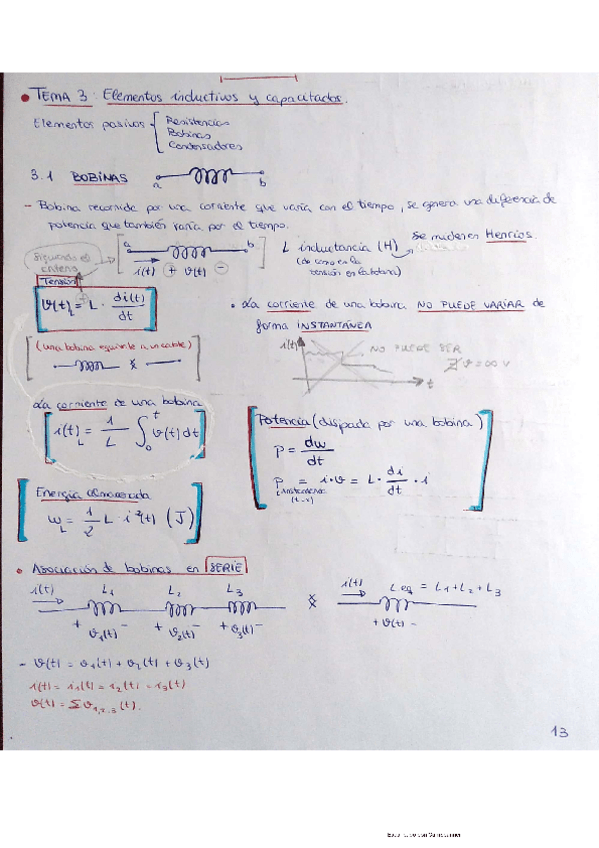 • TEMA 3: Elementos inductivos y capacitados.
Elementos pasivos { Resistencias
Bobinas
Condensadores
3.1 BOBINAS a b
- Bobina recorrida por una corriente que varía con el tiempo, se genera una diferencia de
potencia que también varía por el tiempo.
Siguiendo el
criterio
[ a b ] L inductancia (H) Se miden en Henrios.
i(t) + v(t) -
(de como es la
tensión en la bobina)
Tensión
v(t)L = L · di(t)/dt
• La corriente de una bobina NO PUEDE VARIAR de
forma INSTANTÁNEA
(una bobina equivale a un cable)
i(t) NO PUEDE SER
∄ v = ∞ V
t
La corriente de una bobina
i(t)L = 1/L ∫₀ᵗ v(t) dt
Potencia (disipada por una bobina)
P = dw/dt
P instantánea = i·v = L · di/dt · i
(t-v)
Energía almacenada
wL = 1/2 L · i²(t) (J)
• Asociación de bobinas en SERIE
i(t) L1 L2 L3
+ v1(t) - + v2(t) - + v3(t) -
i(t) L eq = L1 + L2 + L3
+ v(t) -
- v(t) = v1(t) + v2(t) + v3(t)
i(t) = i1(t) = i2(t) = i3(t)
v(t) = Σ v1,2..3 (t).
13